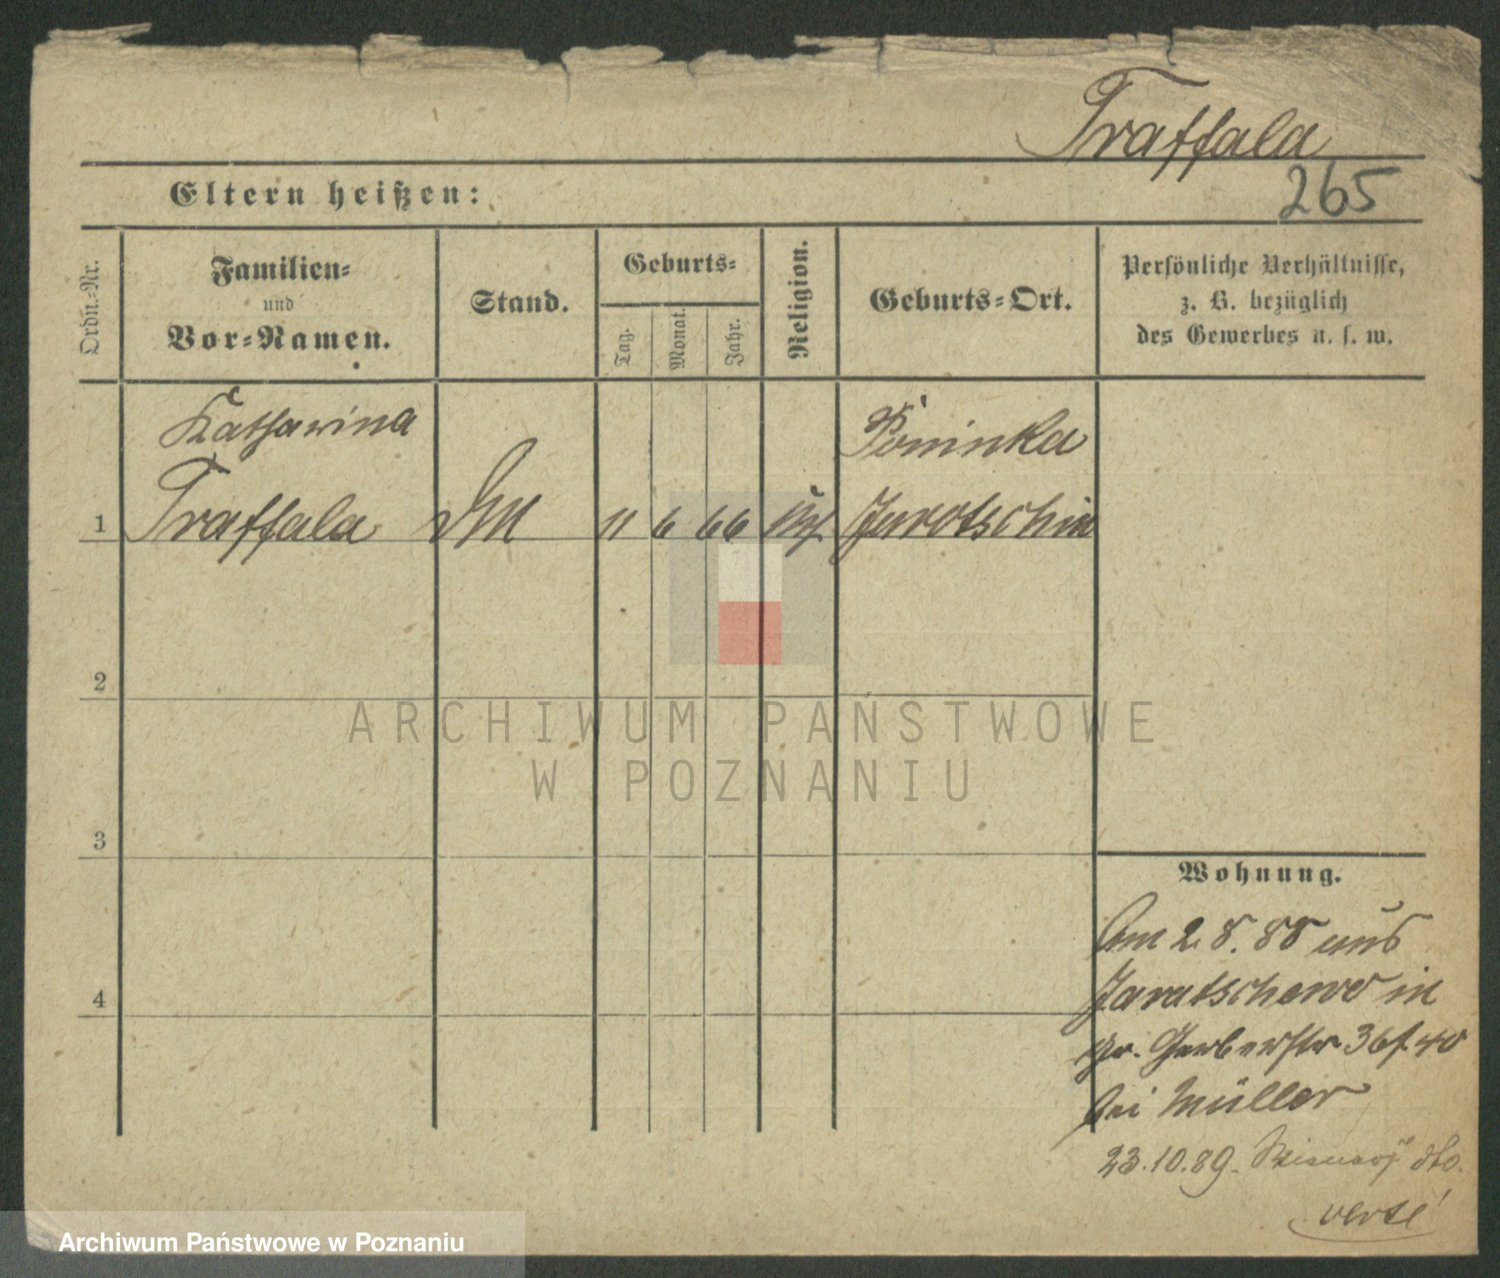 Traffala
265
Eltern heißen:
Ordn.-Nr.
Familien-
und
Vor-Namen.
Stand.
Geburts-
Tag.
Monat.
Jahr.
Religion.
Geburts-Ort.
Persönliche Verhältnisse,
z. B. bezüglich
des Gewerbes u. s. w.
Katharina
Poninka
1 Traffala 11 6 66 Jarotschin
2
3
4
ARCHIWUM PAŃSTWOWE
W POZNANIU
Wohnung.
Am 2. 8. 88 aus
Jaratschewo in
gr. Gerberstr 36 f. 40
bei Müller
23.10.89. dto.
verte
Archiwum Państwowe w Poznaniu